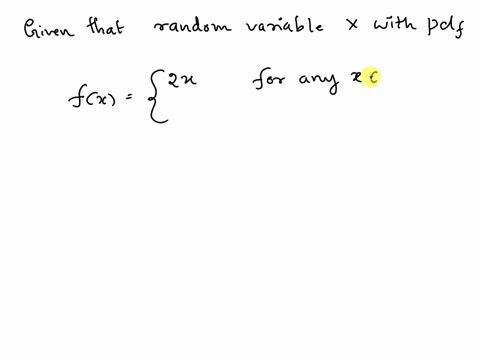 Given that random variable X with pdf
f(x) = { 2x for any x ∈